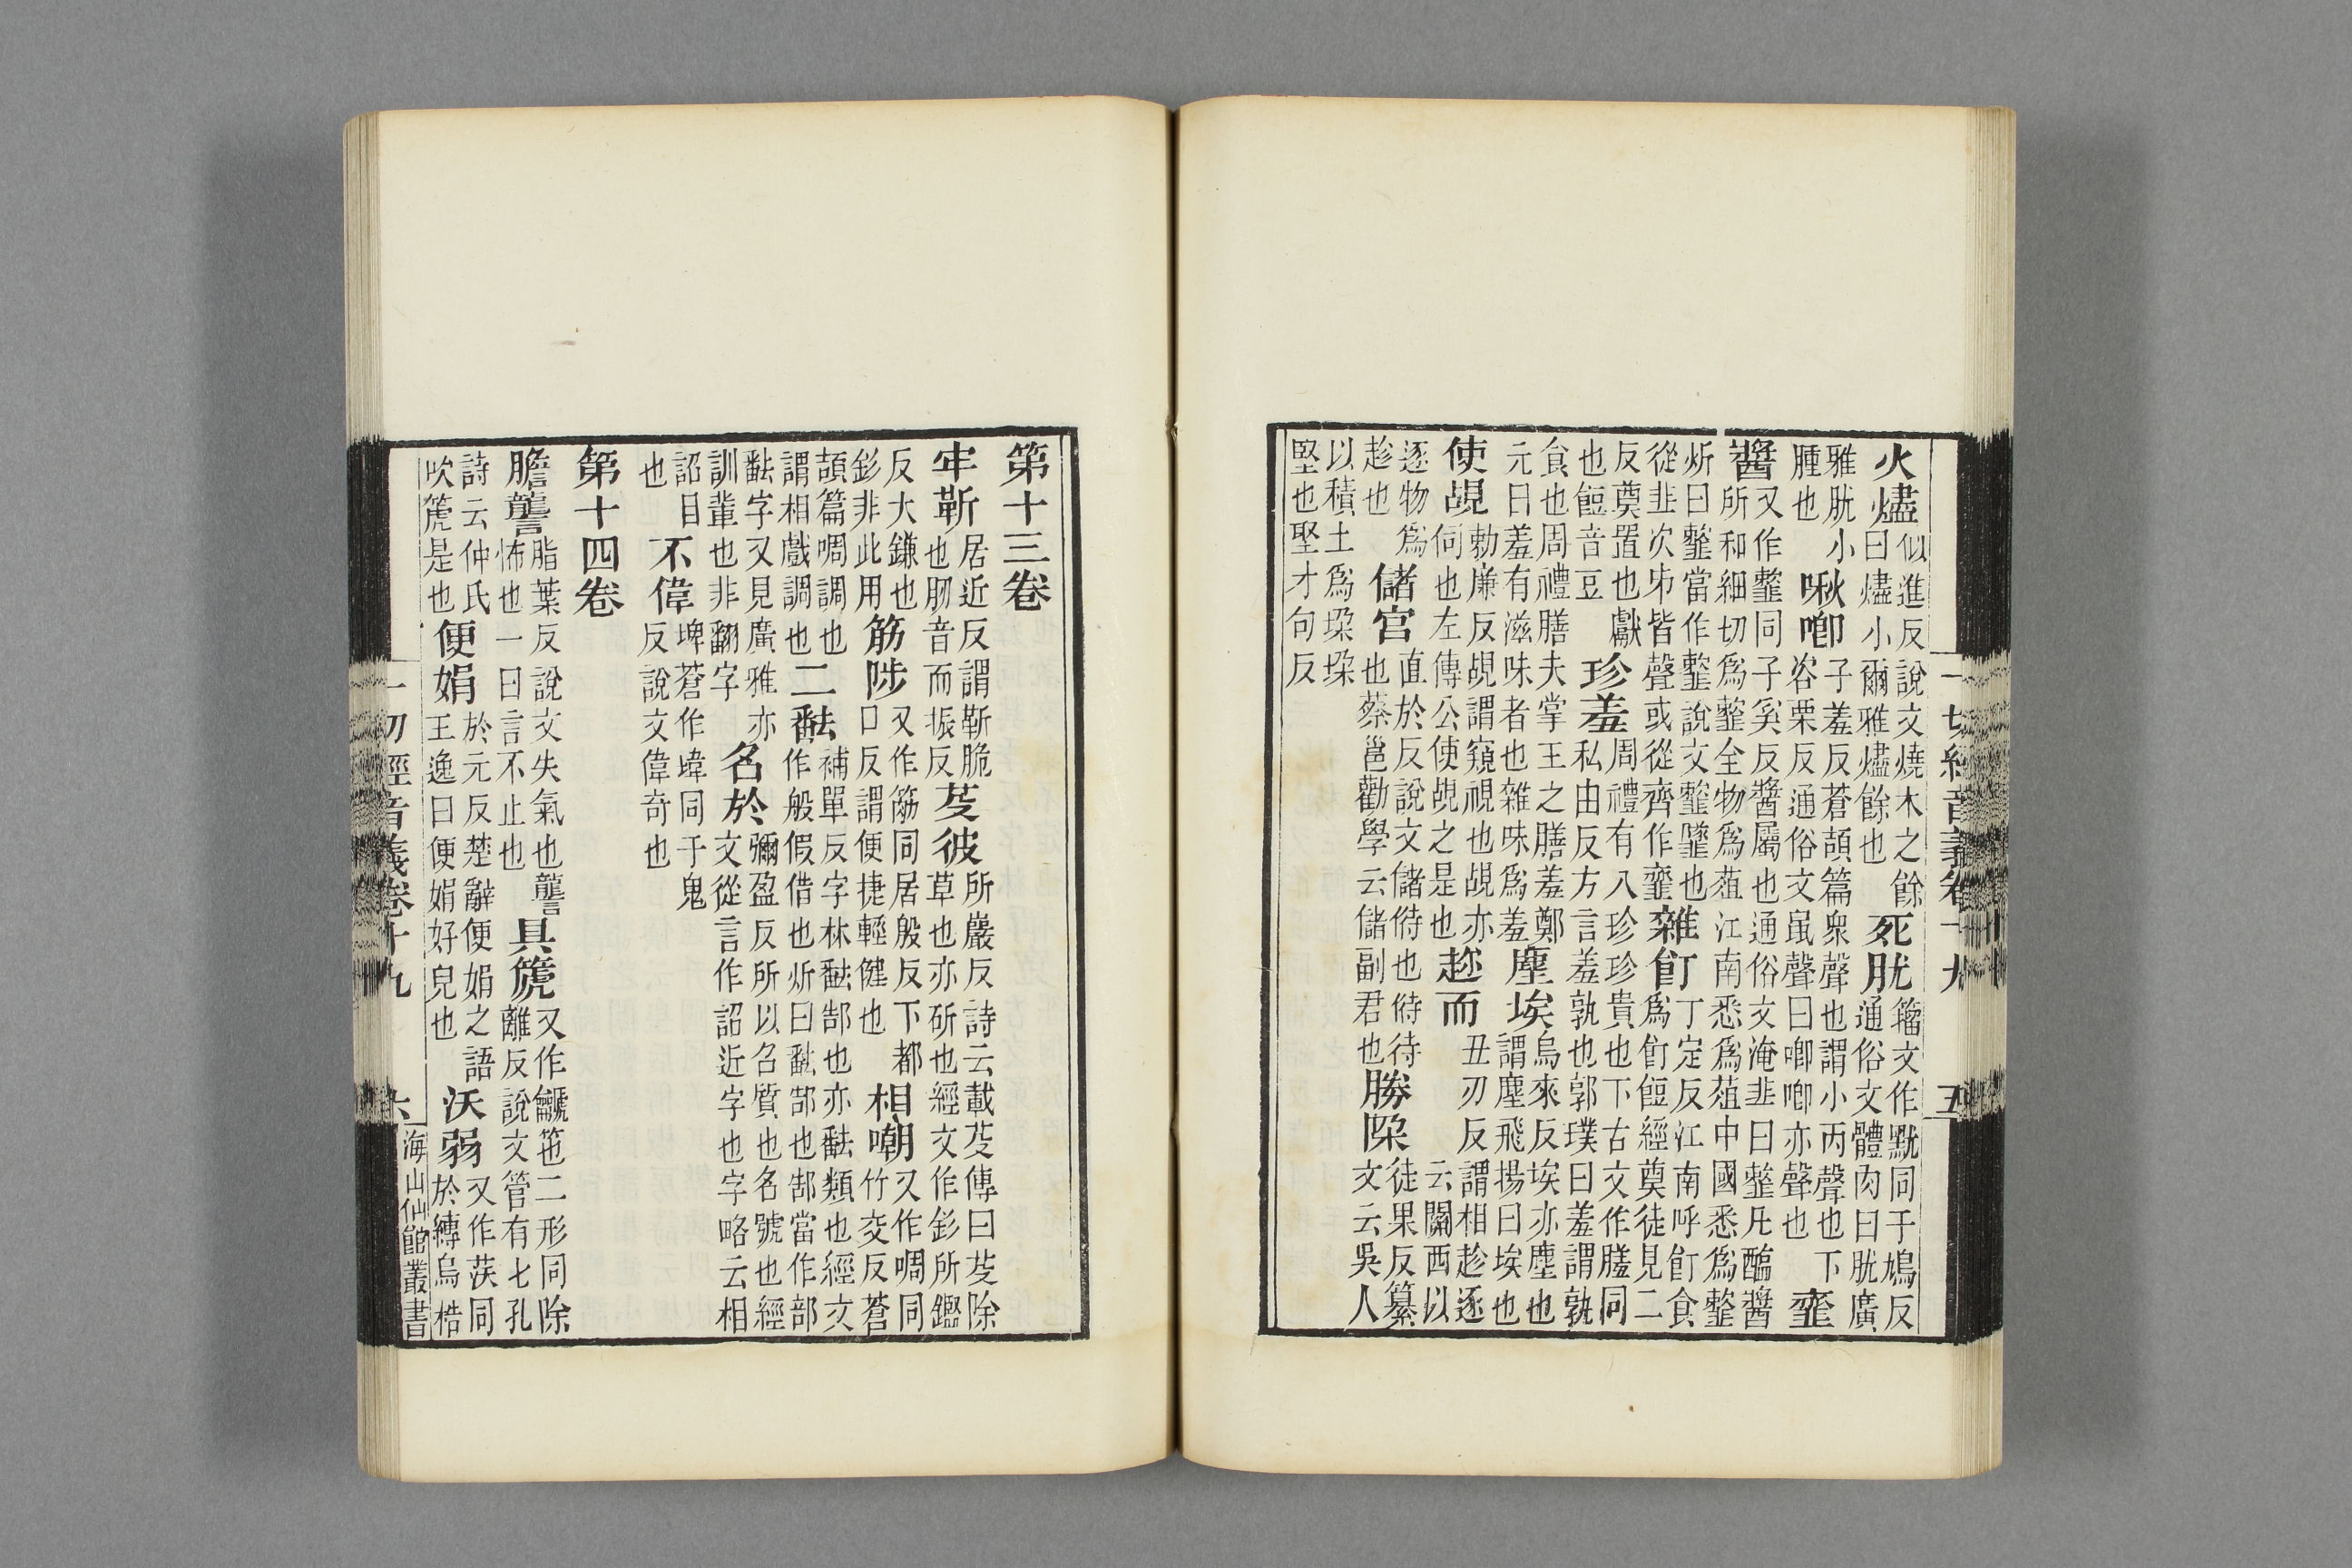 一切經音義卷十九 五
火燼似進反說文燒木之餘曰燼小爾雅燼餘也死肬籀文作黕同于鳩反通俗文體肉曰肬廣
雅肬小腫也啾喞子羞反蒼頡篇衆聲也謂小丙聲也下咨栗反通俗文鼠聲曰喞喞亦聲也虀
醬又作同子奚反醬屬也通俗文淹韭曰凡醢醬所和細切爲全物爲葅江南悉爲葅中國悉爲
炘曰當作說文也從韭次𠂔皆聲或從齊作虀雜飣丁定反江南呼飣食爲飣餖經奠徒見二
反奠置也獻也餖音豆珍羞周禮有八珍珍貴也下古文作同私由反方言羞孰也郭璞曰羞謂孰
食也周禮膳夫掌王之膳羞鄭元曰羞有滋味者也雜味爲羞塵埃烏來反埃亦塵也謂塵飛揚曰埃也
使覘勅廉反覘謂窺視也覘亦伺也左傳公使覘之是也趂而丑刃反謂相趁逐云關西以
逐物爲趁也儲宮直於反說文儲偫也偫待也蔡邕勸學云儲副君也勝垜徒果反纂文云吳人
以積土爲垜垜堅也堅才句反
第十三卷
牢靳居近反謂靳脆也肕音而振反芟彼所嚴反詩云載芟傳曰芟除草也亦斫也經文作釤所鑑
反大鎌也釤非此用筋陟又作䈥同居殷反下都口反謂便捷輕健也相嘲又作啁同竹交反蒼
頡篇啁調也謂相戲調也二㽃補單反字林㽃部也亦㽃類也經文作般假借也炘曰㽃郜也郜當作部
㽃字又見廣雅亦訓輩也非翻字名於彌盈反所以召質也名號也經文從言作詺近字也字略云相
詺目也不偉埤蒼作㙔同于鬼反說文偉奇也
第十四卷
膽讋脂葉反說文失氣也讋怖也一曰言不止也具篪又作䶵竾二形同除離反說文管有七孔
詩云仲氏吹篪是也便娟於元反楚辭便娟之語王逸曰便娟好皃也沃弱又作䒬同於縛烏梏
一切經音義卷十九 六 海山仙館叢書